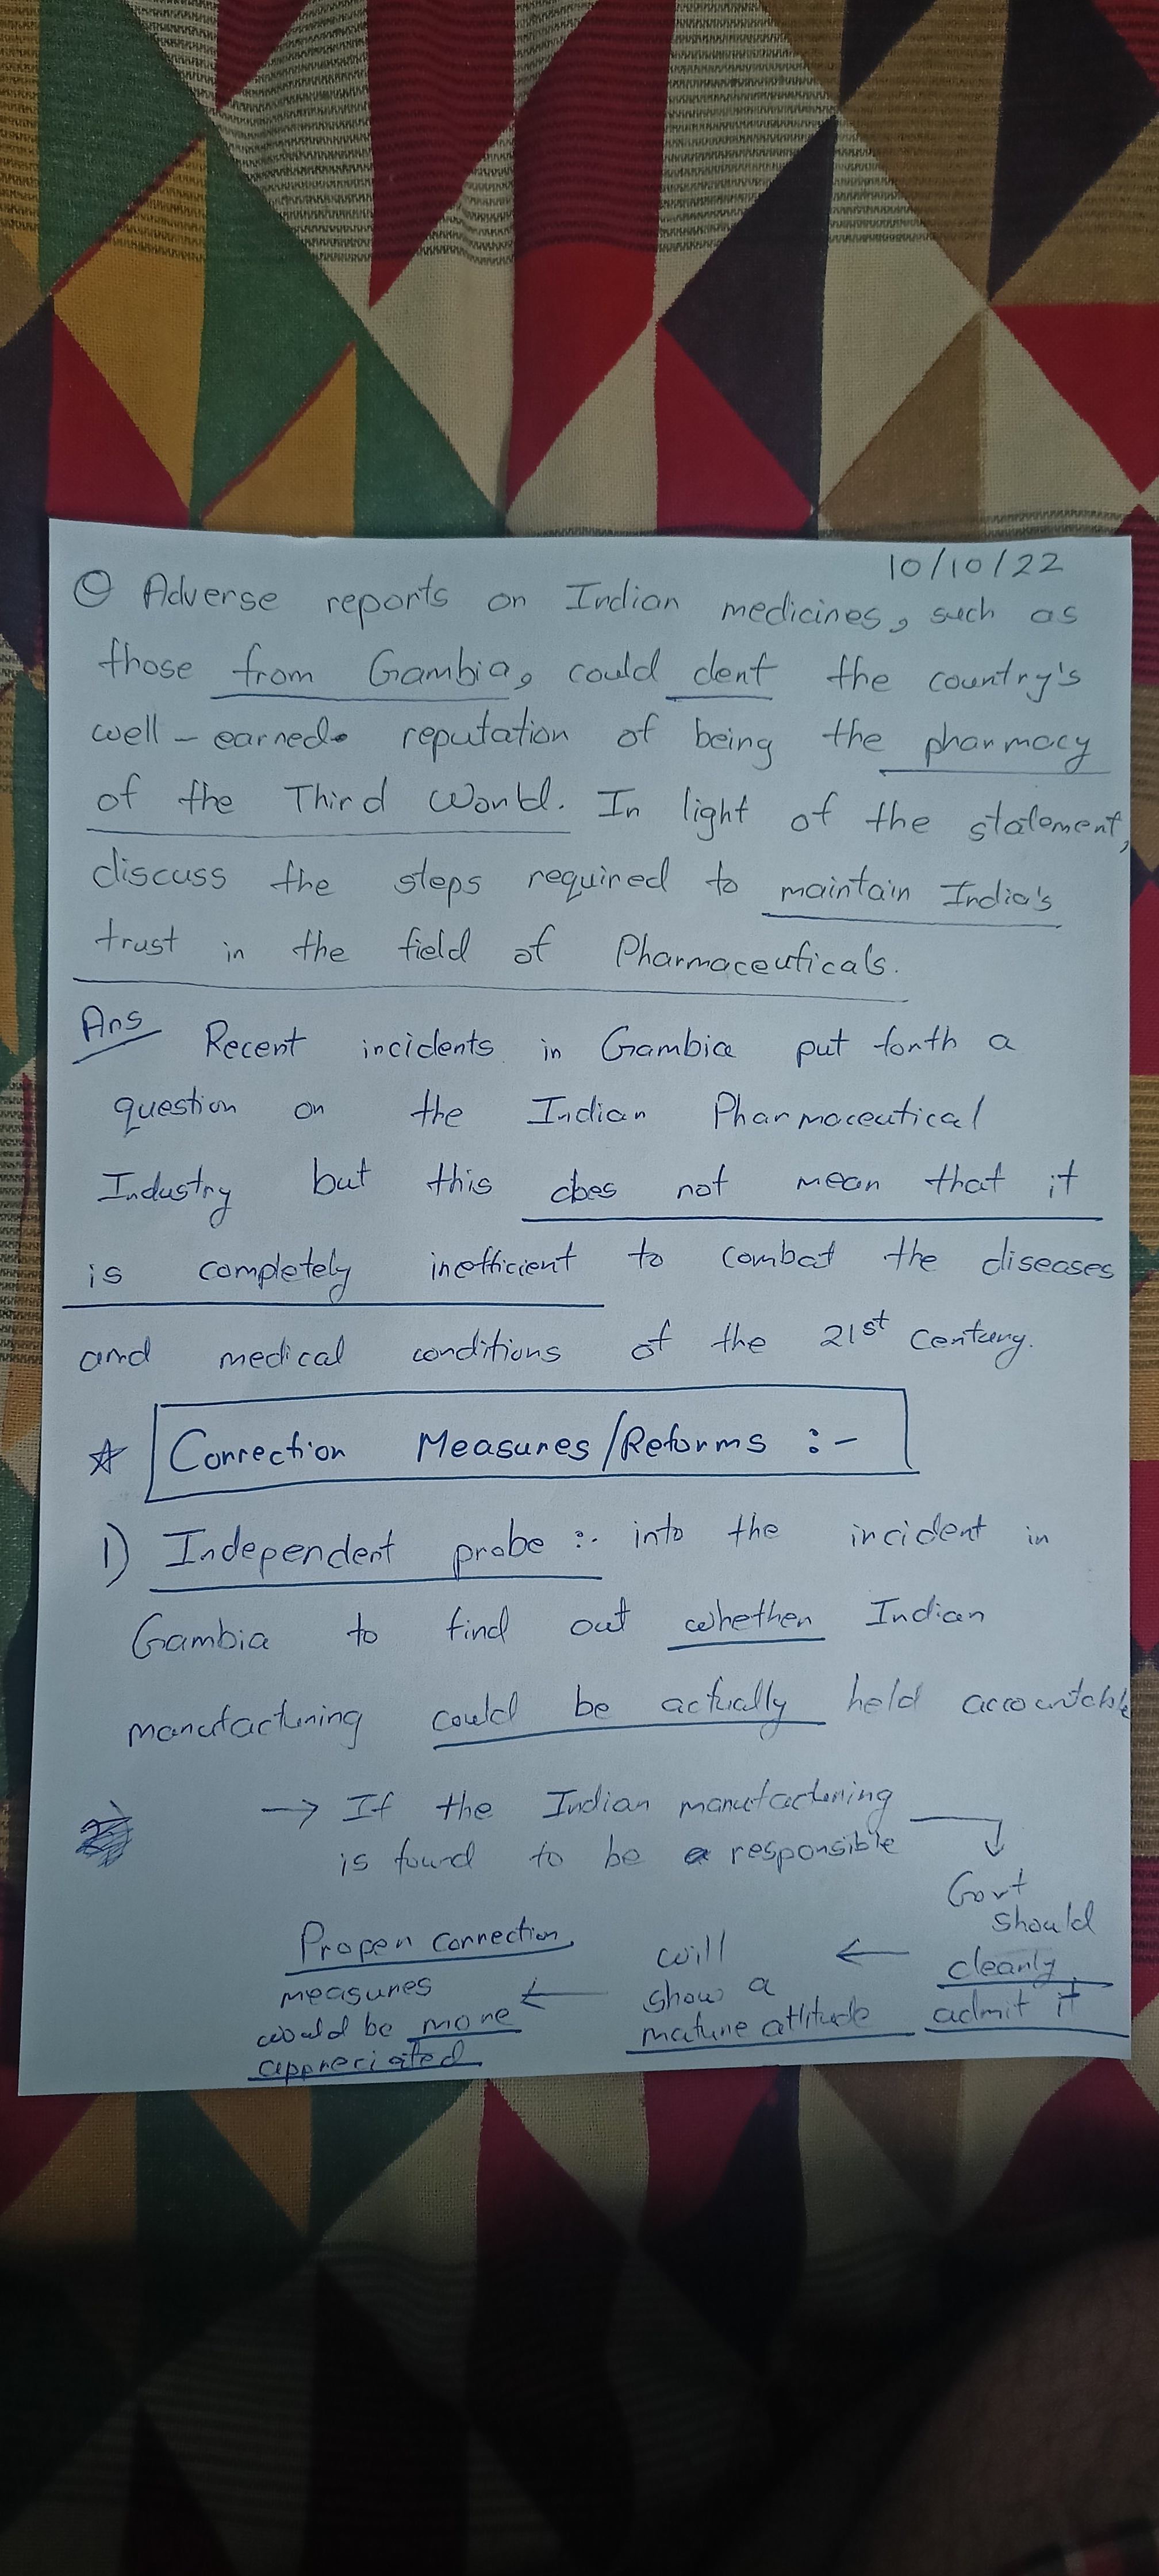 10/10/22
Q Adverse reports on Indian medicines, such as
those from Gambia, could dent the country's
well-earned reputation of being the pharmacy
of the Third World. In light of the statement,
discuss the steps required to maintain India's
trust in the field of Pharmaceuticals.
Ans Recent incidents in Gambia put forth a
question on the Indian Pharmaceutical
Industry but this does not mean that it
is completely inefficient to combat the diseases
and medical conditions of the 21st Century.
☆ Correction Measures/Reforms :-
1) Independent probe :- into the incident in
Gambia to find out whether Indian
manufacturing could be actually held accountable
→ If the Indian manufacturing
is found to be responsible
Govt
should
clearly
admit it
←
will
show a
mature attitude
←
Proper correction
measures
would be more
appreciated